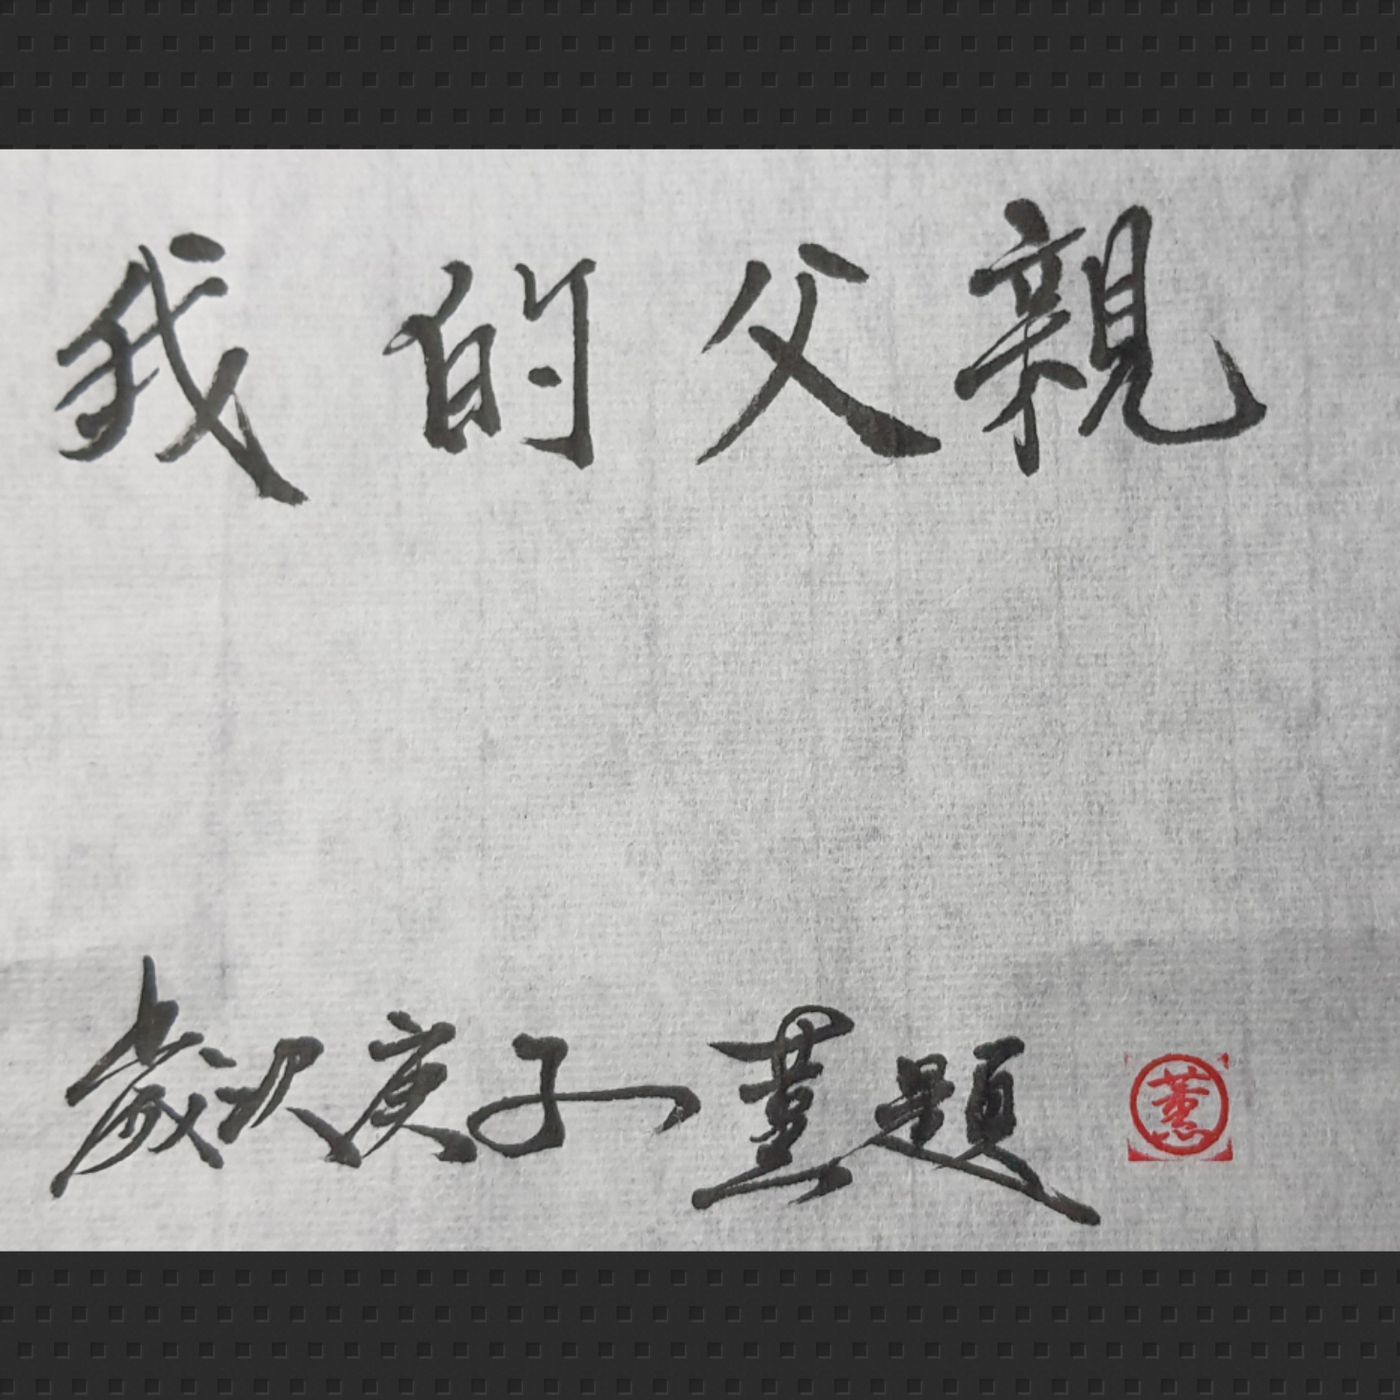 我的父親
歲次庚子蕙題
蕙